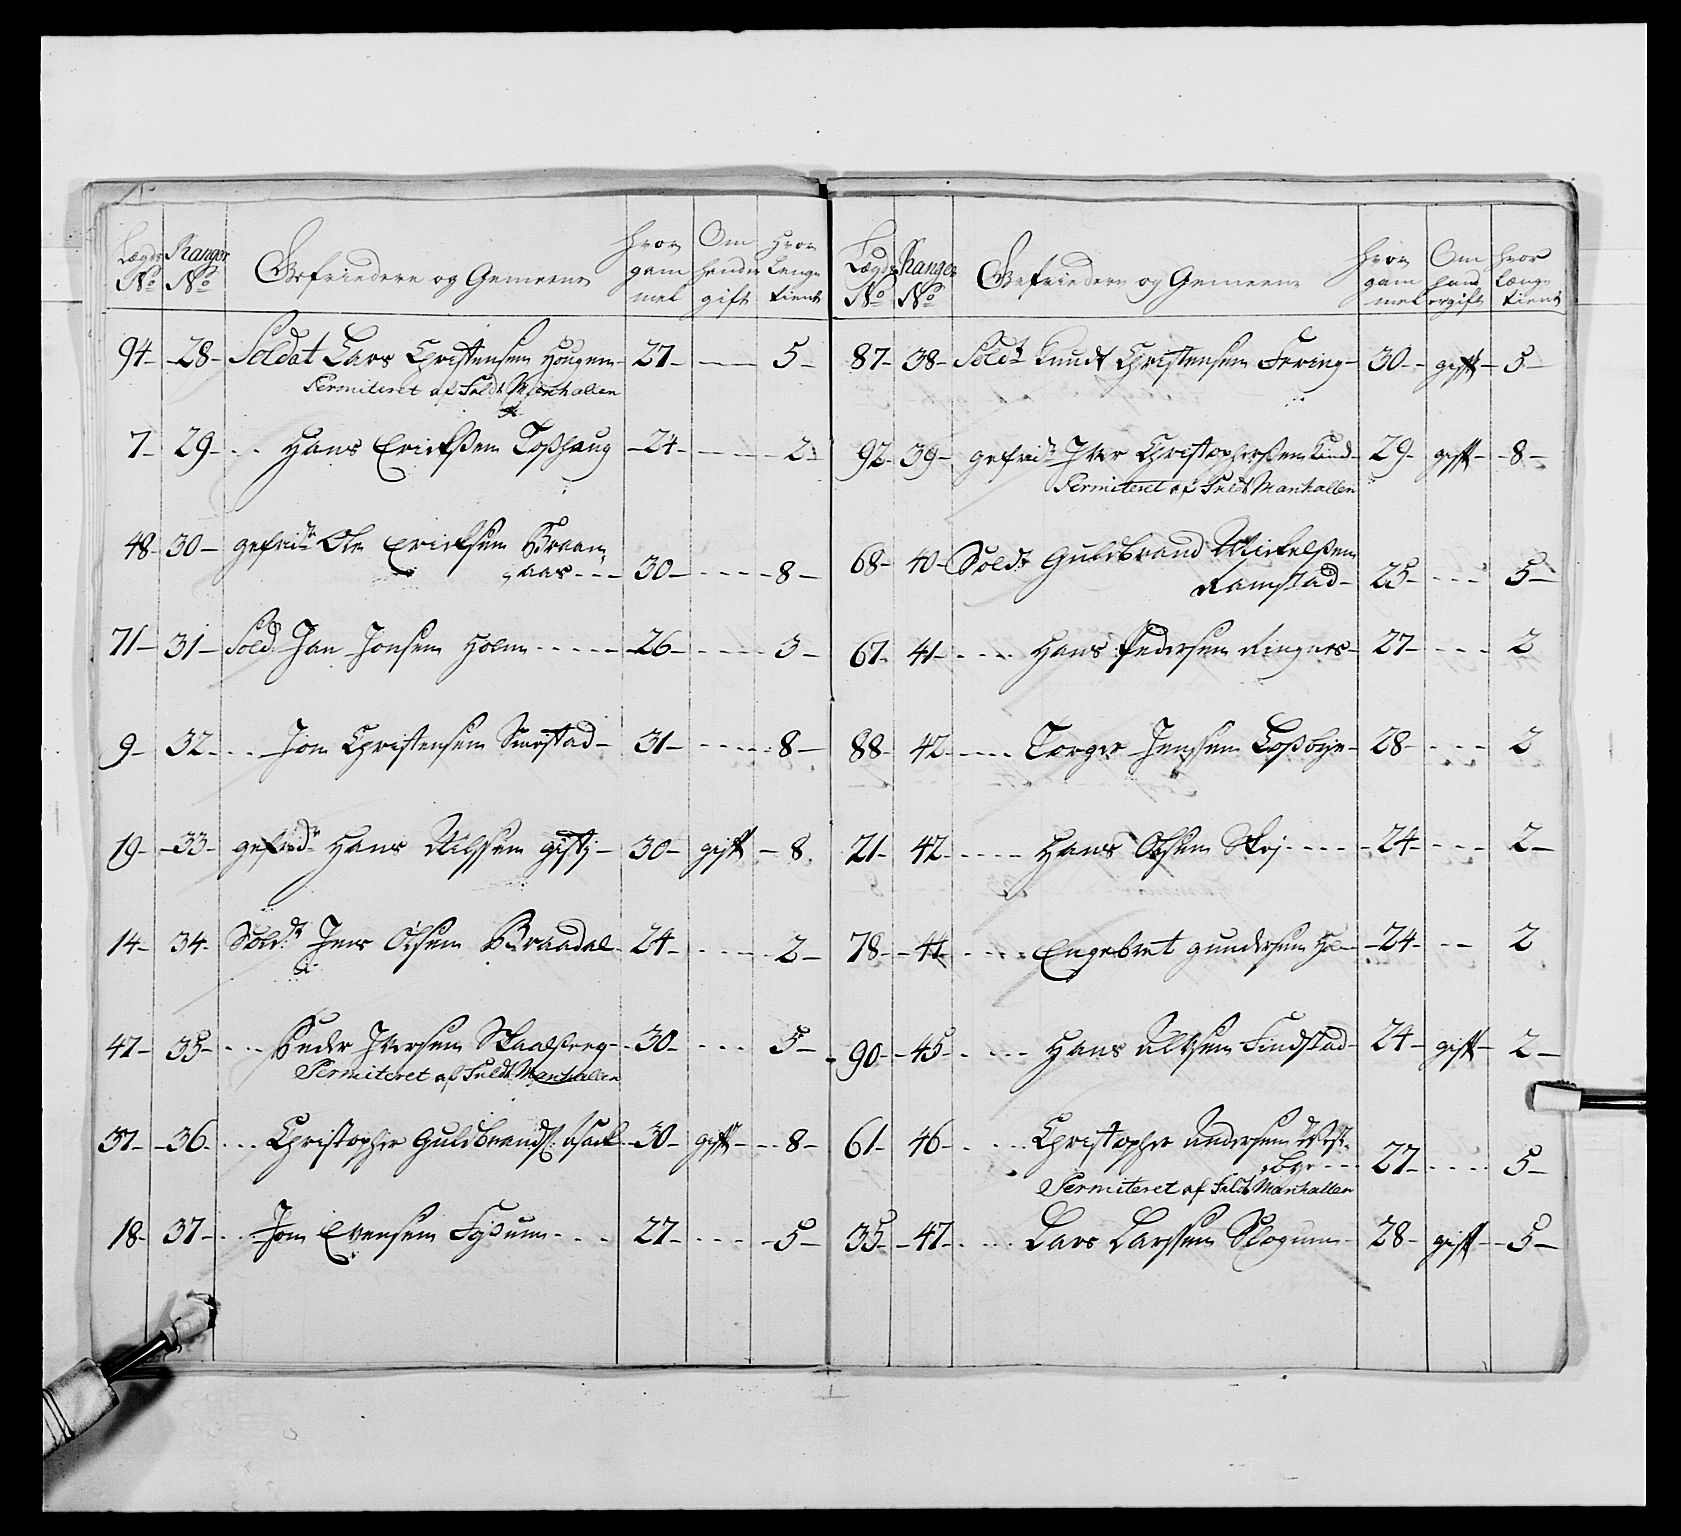 Lægds No Ranger No Gefriedere og Gemeene hvor gam mel Om hand er gift hvor Lenge tient
94 28 Soldat Lars Christensen Hougen 27 5
Permiteret af Feldt Marshallen
7 29 Hans Ericksen Tosshaug 24 2
48 30 gefridr Ole Ericksen Braan
aas 30 8
71 31 Sold Jan Jonsen Holm 26 3
9 32 Jon Christensen Smestad 31 8
19 33 gefridr Hans Nilssen 30 gift 8
14 34 Soldt Jens Olsen Braadal 24 2
47 35 Peder Iversen Skaalberg 30 5
Permiteret af Feldt Marshallen
37 36 Christopher Guldbrands: Asack 30 gift 8
18 37 Jon Evensen 27 5
Lægds No Ranger No Gefriedere og Gemeene hvor gam mel Om hand er gift hvor Længe tient
87 38 Soldt Knudt Christensen Fering 30 gift 5
92 39 gefridr Iver Christophersen Lund 29 gift 8
Permiteret af Feldt Marshallen
68 40 Soldt Guldbrand Mickelsen
Ramstad 25 5
67 41 Hans Pedersen Ringnes 27 2
88 42 Torger Jenssen Losbye 28 2
21 42 Hans Olsen 24 2
78 44 Engebret Gundersen Holm 24 2
90 45 Hans Findstad 24 gift 2
61 46 Christopher Andersen Vest
bye 27 5
Permiteret af Feldt Marshallen
35 47 Lars Larssen Skogum 28 gift 5